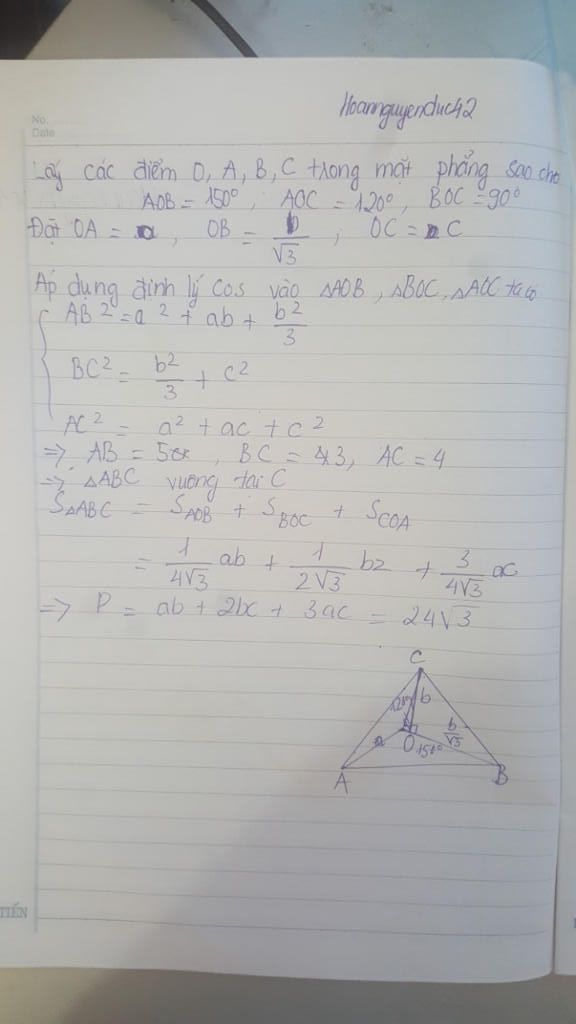 Hoannguyenduc42
No.
Date
Lấy các điểm O, A, B, C trong mặt phẳng sao cho
AOB = 150°, AOC = 120°, BOC = 90°
Đặt OA = a, OB = b/√3 ; OC = C
Áp dụng định lý cos vào △AOB, △BOC, △AOC ta có
AB² = a² + ab + b²/3
BC² = b²/3 + c²
AC² = a² + ac + c²
=> AB = 5, BC = 3, AC = 4
=> △ABC vuông tại C
S△ABC = S_AOB + S_BOC + S_COA
= 1/4√3 ab + 1/2√3 bz + 3/4√3 ac
=> P = ab + 2bc + 3ac = 24√3
C
120° b
a O b/√3
150°
A B
TIẾN